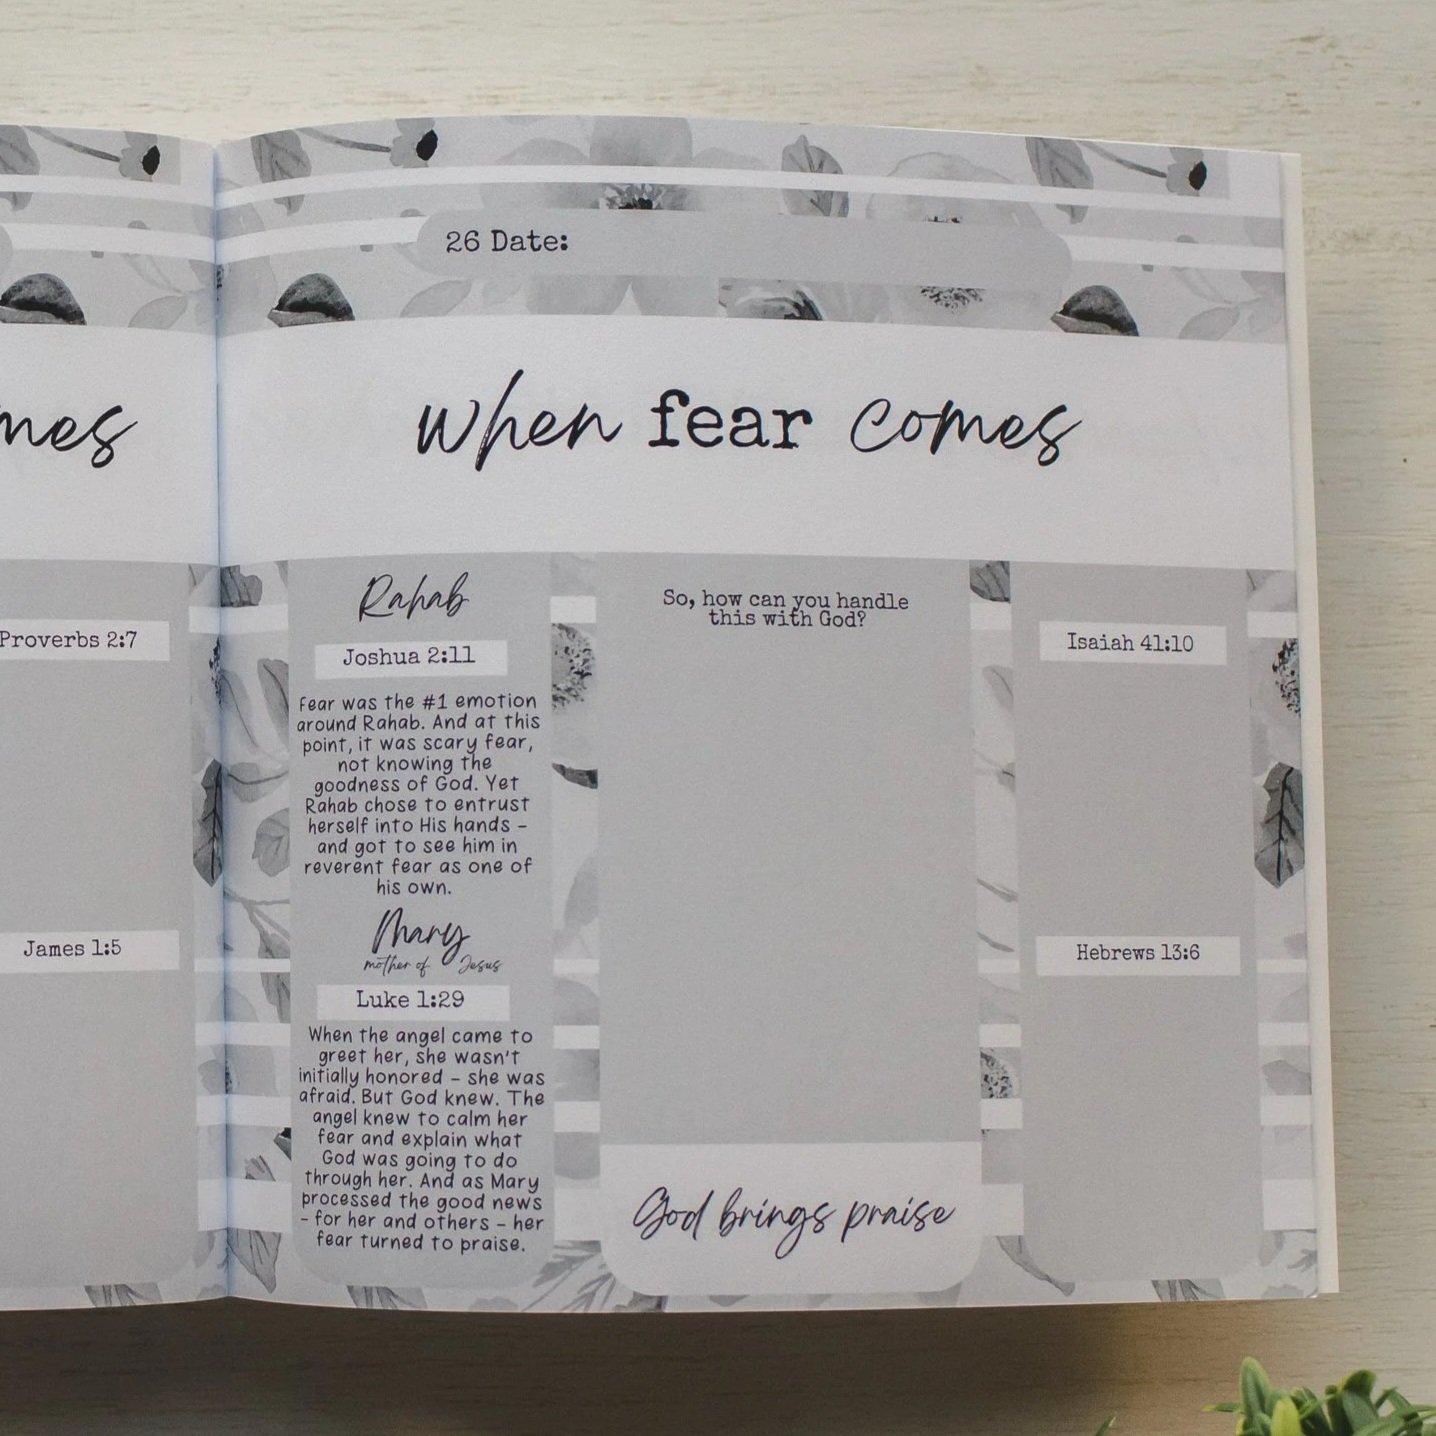 mes
Proverbs 2:7
James 1:5
26 Date:
When fear comes
Rahab
Joshua 2:11
Fear was the #1 emotion
around Rahab. And at this
point, it was scary fear,
not knowing the
goodness of God. Yet
Rahab chose to entrust
herself into His hands –
and got to see him in
reverent fear as one of
his own.
Mary
mother of Jesus
Luke 1:29
When the angel came to
greet her, she wasn't
initially honored – she was
afraid. But God knew. The
angel knew to calm her
fear and explain what
God was going to do
through her. And as Mary
processed the good news
– for her and others – her
fear turned to praise.
So, how can you handle
this with God?
God brings praise
Isaiah 41:10
Hebrews 13:6